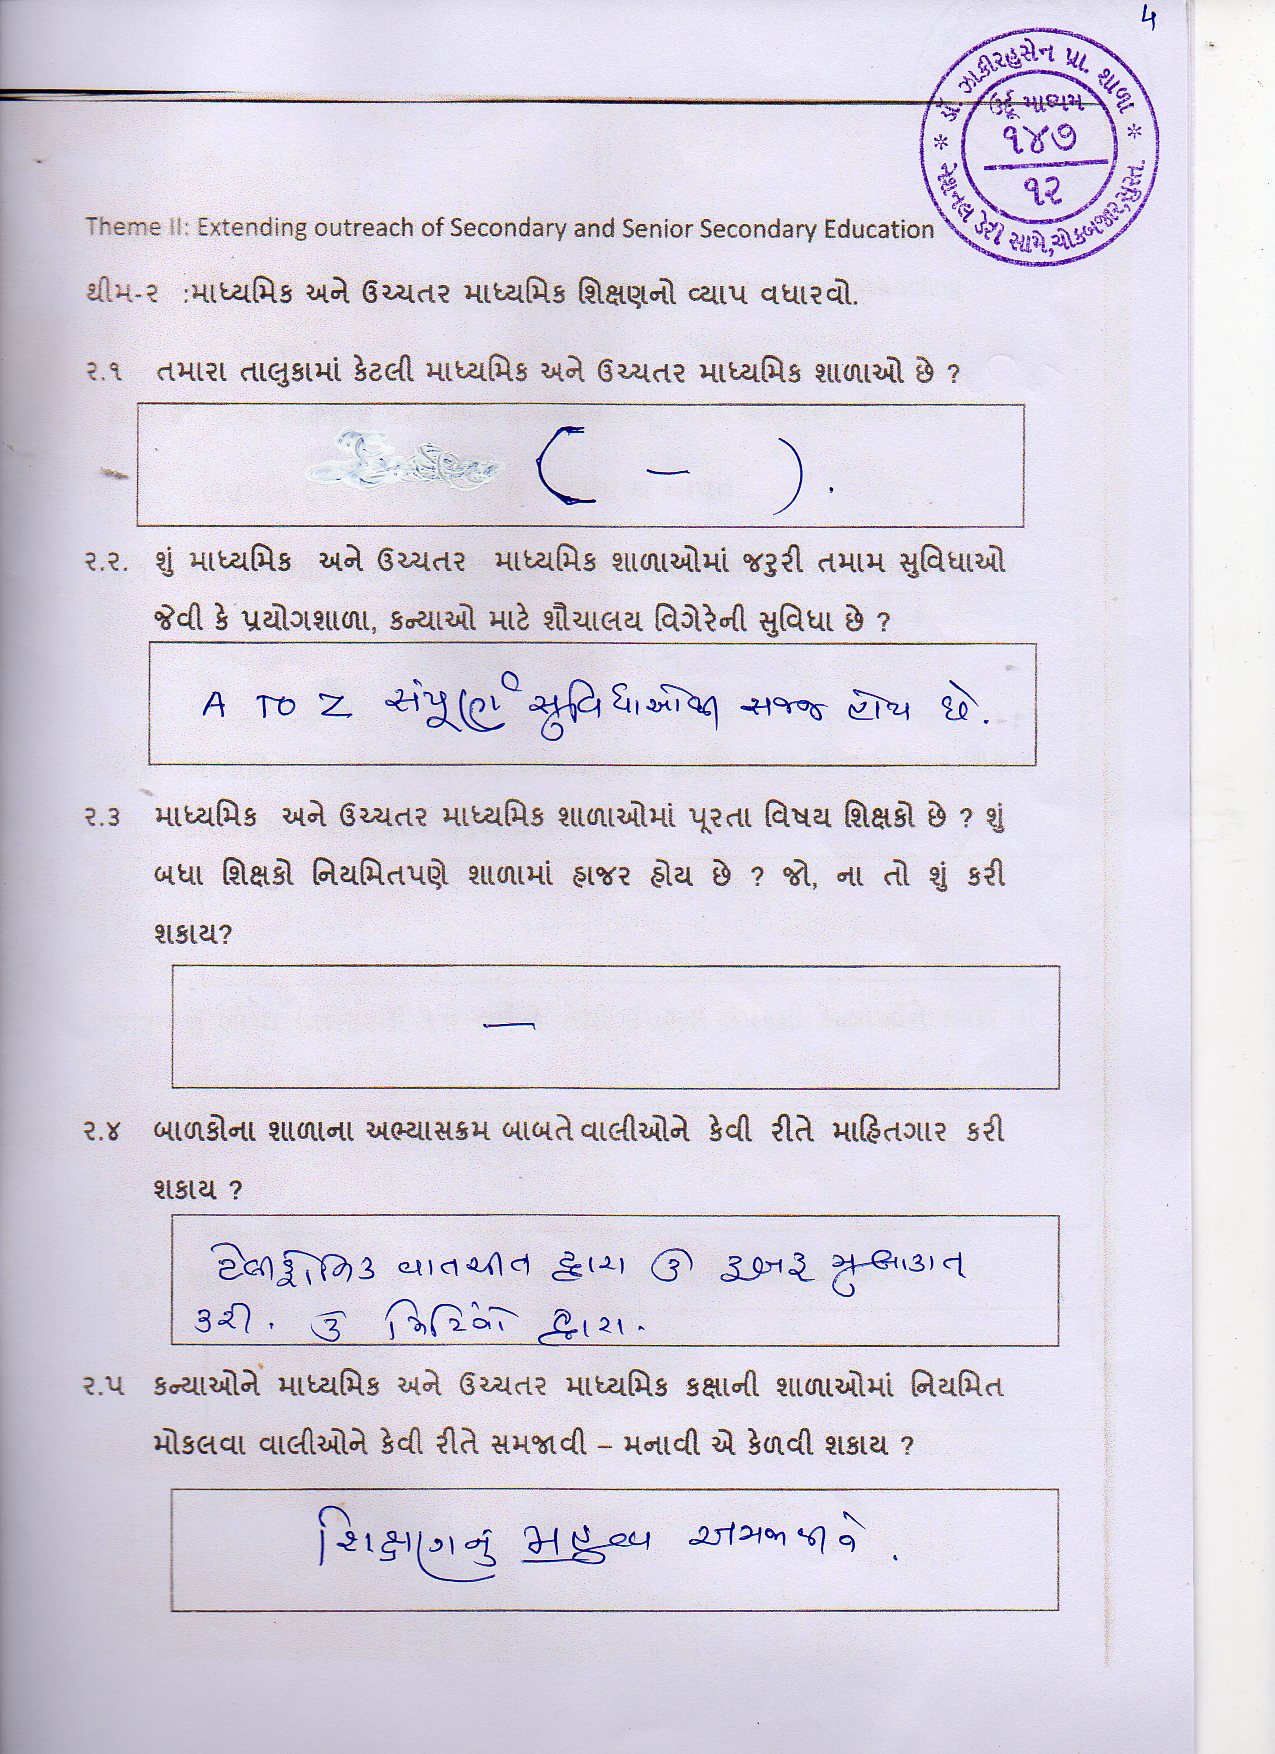 ૫
* ડૉ. ઝાકીરહુસેન પ્રા. શાળા *
ઉર્દૂ માધ્યમ
૧૪૭
૧૨
નેશનલ ડેરી સામે, ચોકબજાર, સુરત.
Theme II: Extending outreach of Secondary and Senior Secondary Education
થીમ-૨ :માધ્યમિક અને ઉચ્ચતર માધ્યમિક શિક્ષણનો વ્યાપ વધારવો.
૨.૧ તમારા તાલુકામાં કેટલી માધ્યમિક અને ઉચ્ચતર માધ્યમિક શાળાઓ છે ?
( — ).
૨.૨. શું માધ્યમિક અને ઉચ્ચતર માધ્યમિક શાળાઓમાં જરુરી તમામ સુવિધાઓ
જેવી કે પ્રયોગશાળા, કન્યાઓ માટે શૌચાલય વિગેરેની સુવિધા છે ?
A TO Z સંપૂર્ણ સુવિધાઓથી સજ્જ હોય છે.
૨.૩ માધ્યમિક અને ઉચ્ચતર માધ્યમિક શાળાઓમાં પૂરતા વિષય શિક્ષકો છે ? શું
બધા શિક્ષકો નિયમિતપણે શાળામાં હાજર હોય છે ? જો, ના તો શું કરી
શકાય?
—
૨.૪ બાળકોના શાળાના અભ્યાસક્રમ બાબતે વાલીઓને કેવી રીતે માહિતગાર કરી
શકાય ?
ટેલીફોનિક વાતચીત દ્વારા કે રૂબરૂ મુલાકાત
કરી. કે મિટિંગો દ્વારા.
૨.૫ કન્યાઓને માધ્યમિક અને ઉચ્ચતર માધ્યમિક કક્ષાની શાળાઓમાં નિયમિત
મોકલવા વાલીઓને કેવી રીતે સમજાવી – મનાવી એ કેળવી શકાય ?
શિક્ષણનું મહત્વ સમજાવી ને .